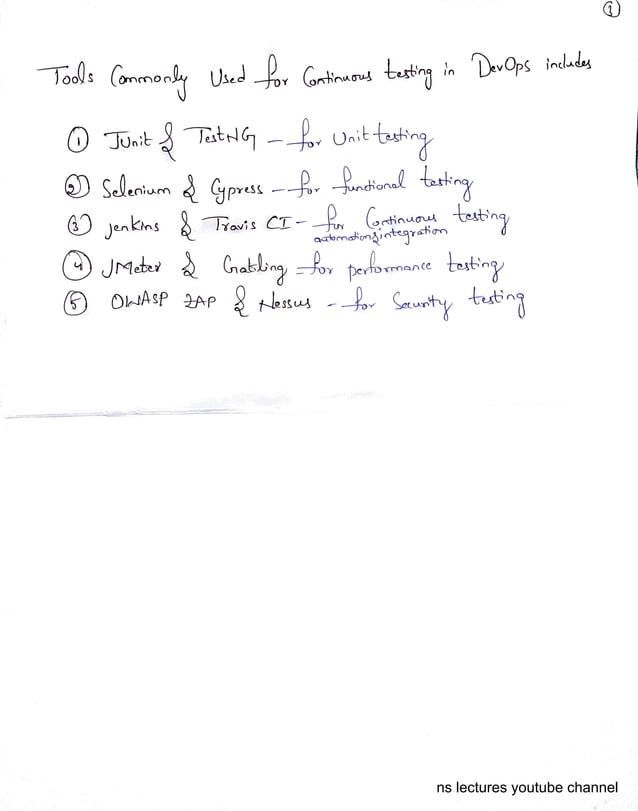 ①
Tools Commonly Used for Continuous testing in DevOps includes
① JUnit & TestNG – for Unit testing
② Selenium & Cypress – for functional testing
③ jenkins & Travis CI – for Continuous testing
automation & integration
④ JMeter & Gatling – for performance testing
⑤ OWASP ZAP & Nessus – for Security testing
ns lectures youtube channel